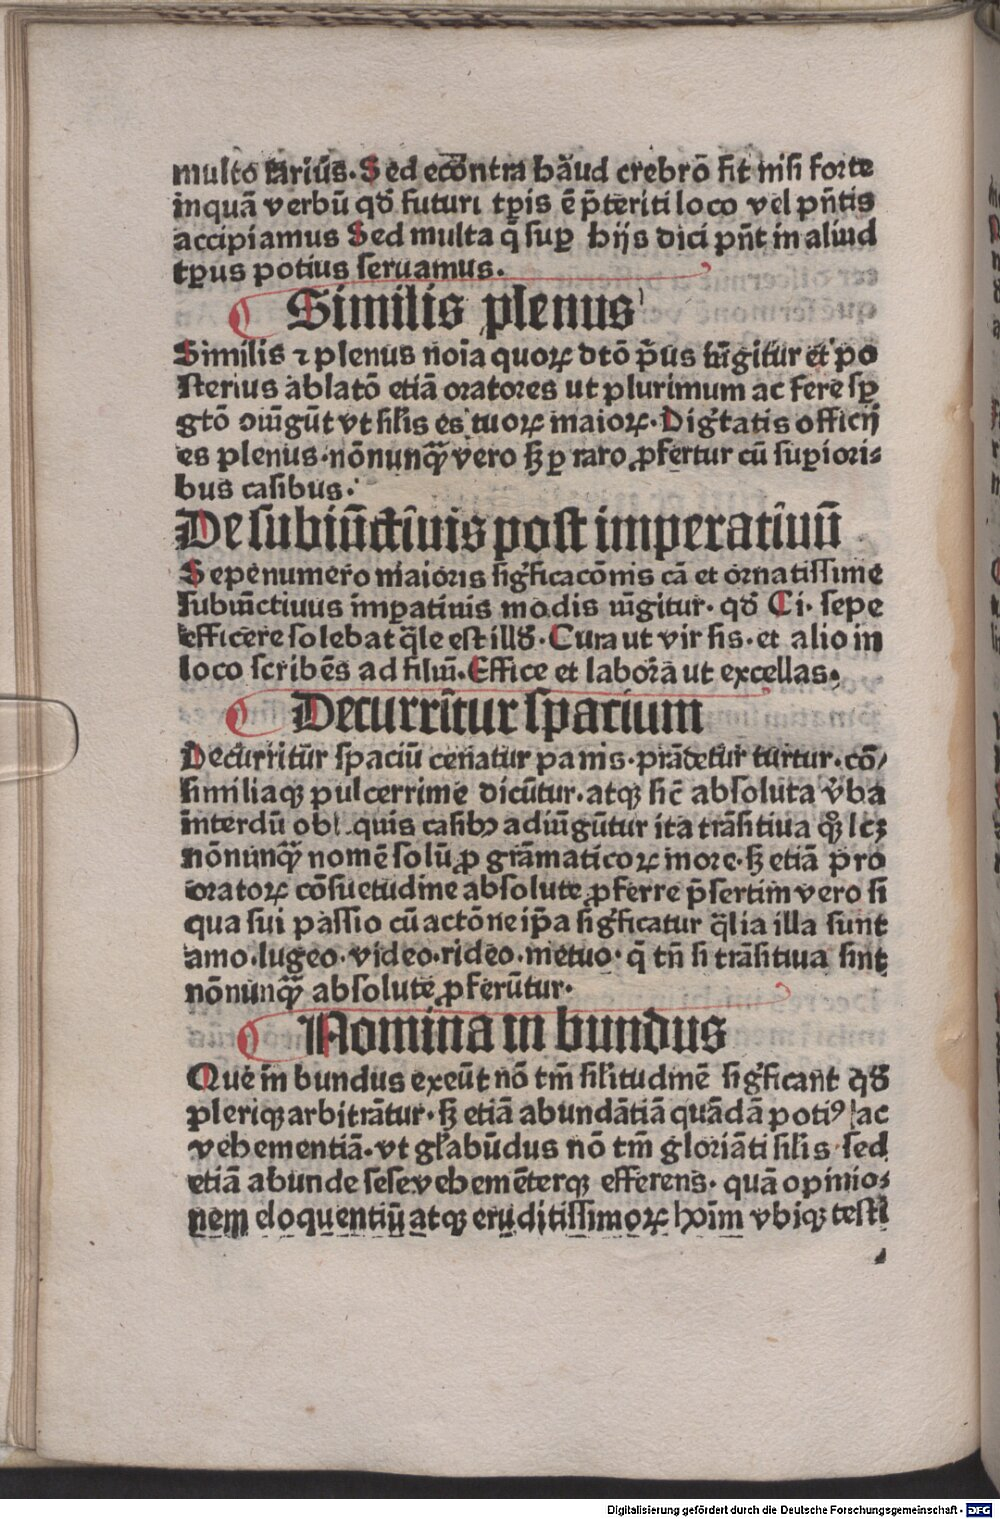 multo rariūs. Sed ecōntra hāud crebrō fit nisi forte
inquā verbū qđ futuri tp̄is ē p̄teriti loco vel pn̄tis
accipiamus Sed multa q̄ suꝑ hijs dici pn̄t in aliud
tp̄us potius seruamus.
Similis plenus
Similis ⁊ plenus noīa quoꝝ dtō p̄us iūgitur et po
sterius ablatō etiā oratores ut plurimum ac fere sꝑ
gtō ꝯiūgūt vt silis es tuoꝝ maioꝝ. Dig̃tatis officij
es plenus. nōnunqꝫ vero sꝫ ꝑ raro ꝓfertur cū suꝑiori⸗
bus casibus.
De subiūctīuis post imperatīuū
Sepenumero maioris sig̃ficacōnis cā et ornatissime
subiūctiuus imꝑatiuis modis iūgitur. qđ Ci. sepe
efficere solebat q̄le est illđ. Cura ut vir sis. et alio in
loco scribēs ad filiū. Effice et laborā ut excellas.
Decurrītur spatium
Decurritūr spaciū cenatur panis. prādetur turtur. cō/
similiaqꝫ pulcerrime dicūtur. atqꝫ sic̄ absoluta v̄ba
interdū obl quis casibꝫ adiūgūtur ita trāsitiua qꝫ lcꝫ
nōnunqꝫ nomē solū ꝓ grāmaticoꝝ more. sꝫ etiā pro
oratoꝝ cōsuetudine absolute ꝓferre p̄sertim vero si
qua sui passio cū actōne ip̄a sig̃ficatur q̄lia illa sunt
amo. lugeo. video. rideo. metuo. q̄ tn̄ si trāsitiua sint
nōnunqꝫ absolute ꝓferūtur.
Nomina in bundus
Que in bundus exeūt nō tm̄ silitudinē sig̃ficant qđ
pleriqꝫ arbitrātur. sꝫ etiā abundātiā quādā potiꝰ ac
vehementiā. vt gl̄abūdus nō tm̄ gloriāti silis sed
etiā abunde sese vehemēterqꝫ efferens. quā opinio⸗
nem eloquentiū atqꝫ eruditissimoꝝ hoīm vbiqꝫ testi
Digitalisierung gefördert durch die Deutsche Forschungsgemeinschaft - DFG